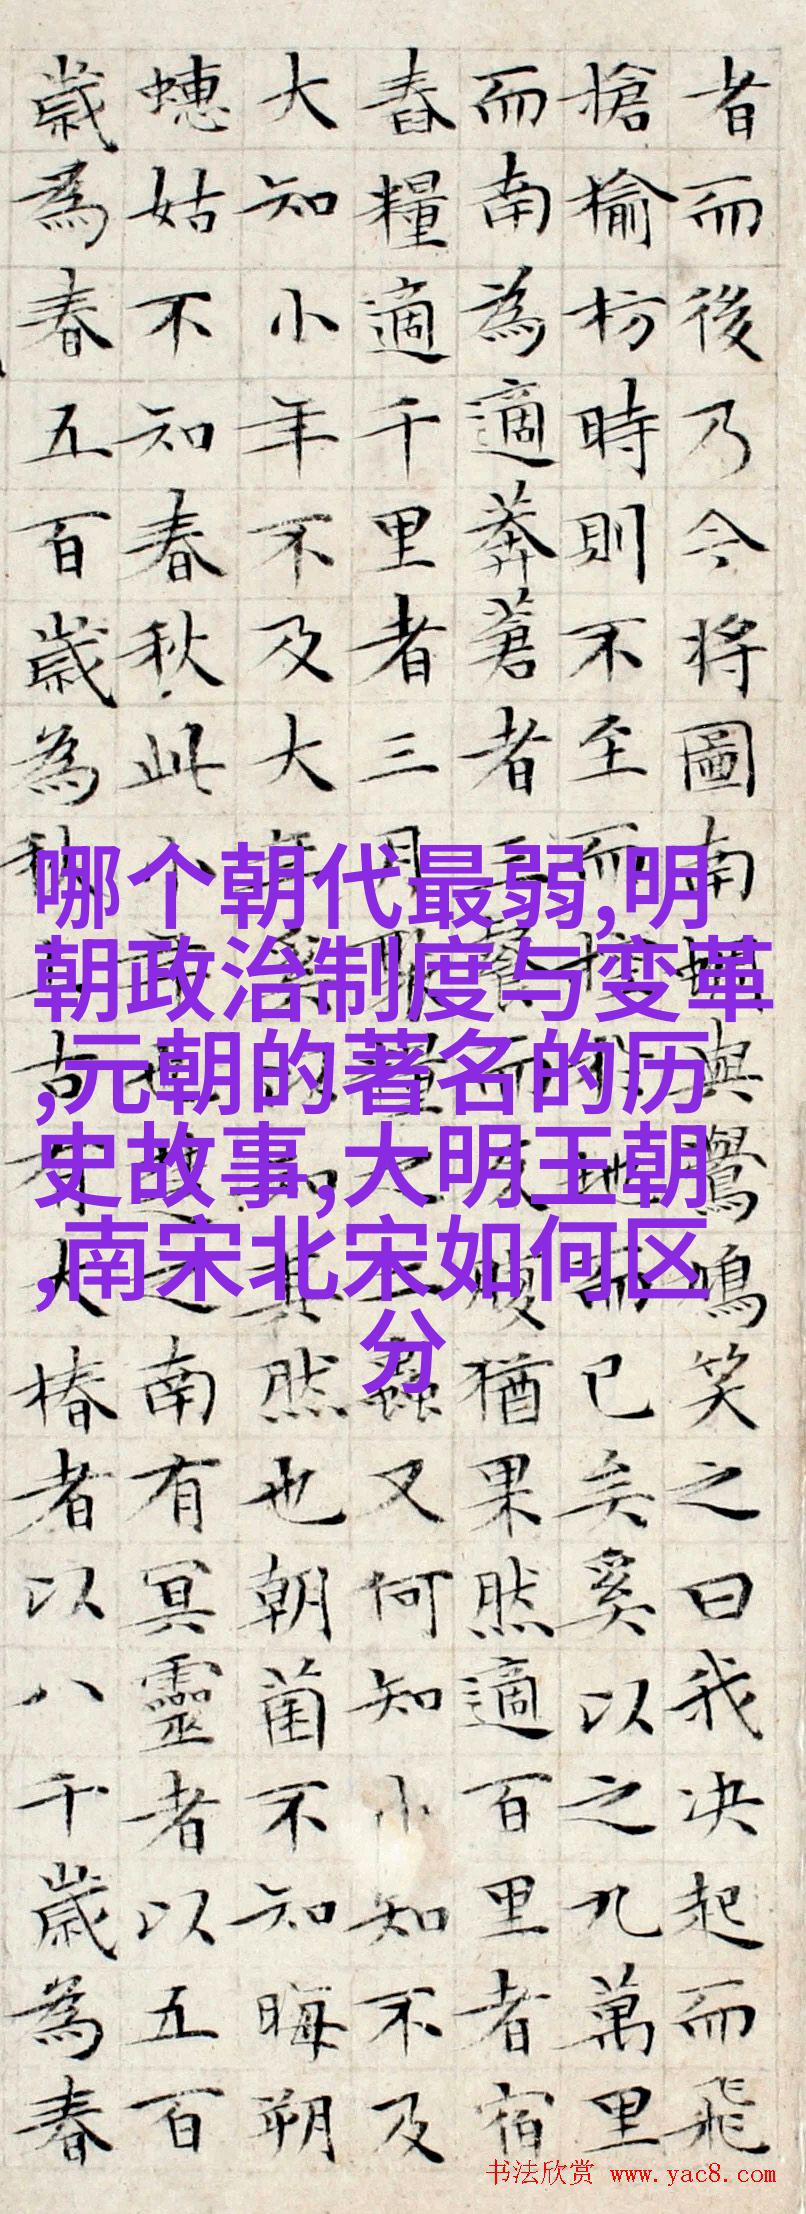 者而後乃今將圖南蜩與鷽鳴笑之曰我决起而飛
搶榆枋時則不至而控於地而已矣奚以之九萬里
而南為適莽蒼者三飡而反腹猶果然適百里者宿
舂糧適千里者三月聚糧之二蟲又何知小知不及
大知小年不及大年奚以知其然也朝菌不知晦朔
蟪姑不知春秋此小年也楚之南有冥靈者以五百
歲為春五百歲為秋上古有大椿者以八千歲為春
哪个朝代最弱,明
朝政治制度与变革
,元朝的著名的历
史故事,大明王朝
,南宋北宋如何区
分
书法欣赏 www.yac8.com